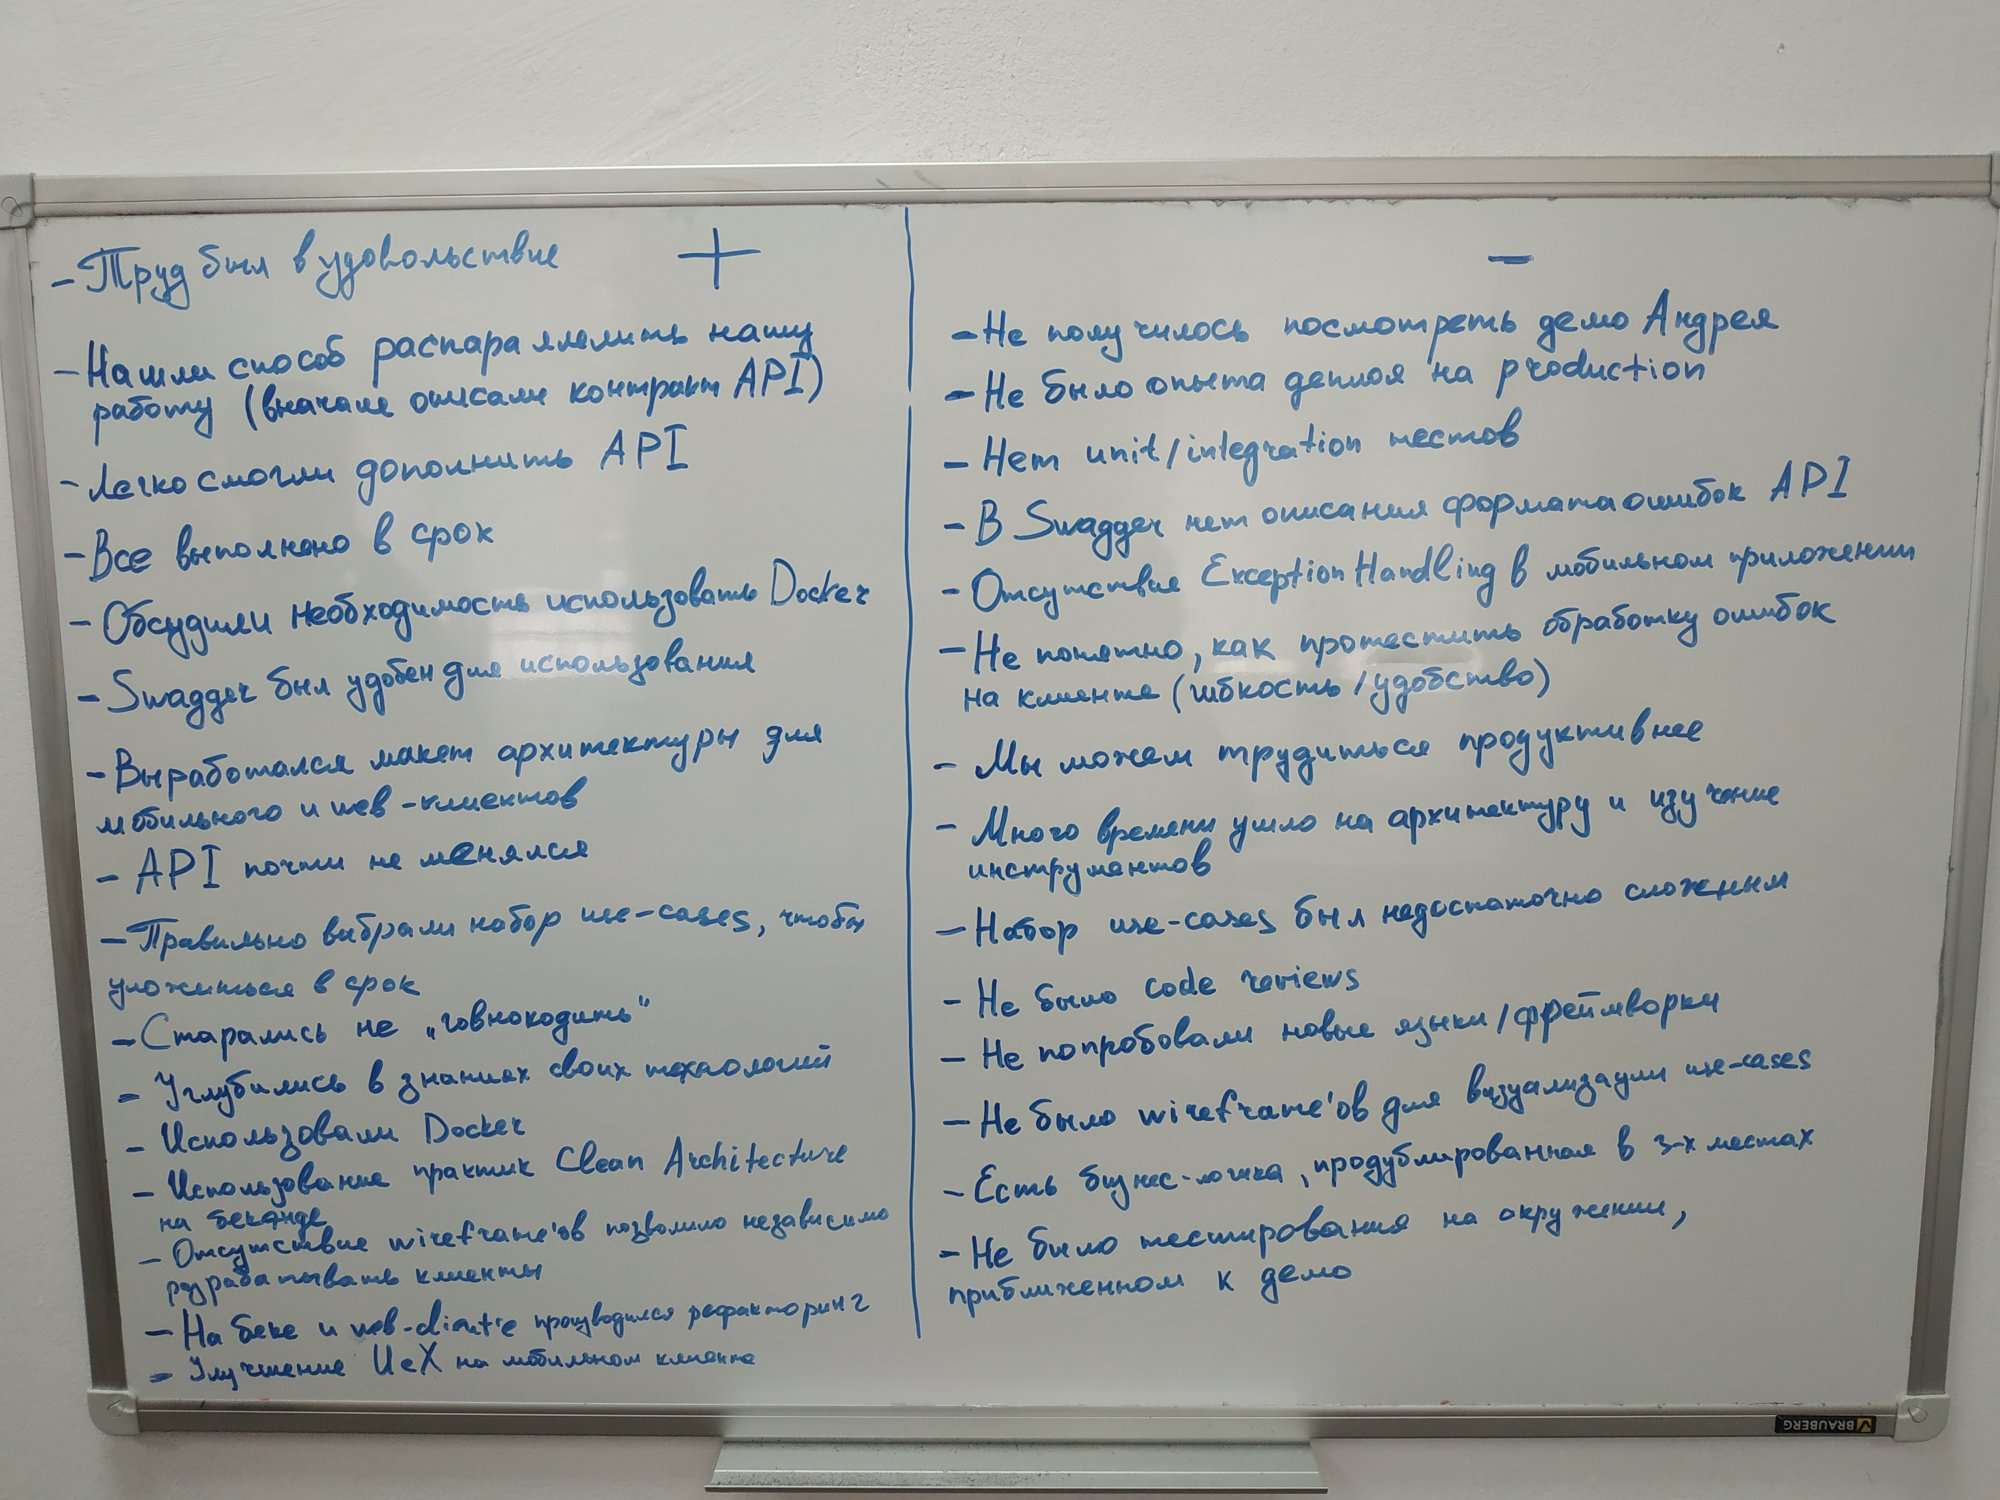 - Труд был в удовольствие +
- Нашли способ распараллелить нашу
работу (вначале описали контракт API)
- Легко смогли дополнить API
- Все выполнено в срок
- Обсудили необходимость использовать Docker
- Swagger был удобен для использования
- Выработался макет архитектуры для
мобильного и web-клиентов
- API почти не менялся
- Правильно выбрали набор use-cases, чтобы
уложиться в срок
- Старались не „говнокодить"
- Углубились в знаниях своих технологий
- Использовали Docker
- Использование практик Clean Architecture
на бекэнде
- Отсутствие wireframe'ов позволило независимо
разрабатывать клиенты
- На беке и web-client'е производился рефакторинг
- Улучшение UeX на мобильном клиенте
-
- Не получилось посмотреть демо Андрея
- Не было опыта деплоя на production
- Нет unit/integration тестов
- В Swagger нет описания формата ошибок API
- Отсутствие Exception Handling в мобильном приложении
- Не понятно, как протестить обработку ошибок
на клиенте (гибкость/удобство)
- Мы можем трудиться продуктивнее
- Много времени ушло на архитектуру и изучение
инструментов
- Набор use-cases был недостаточно сложным
- Не было code reviews
- Не попробовали новые языки/фреймворки
- Не было wireframe'ов для визуализации use-cases
- Есть бизнес-логика, продублированная в 3-х местах
- Не было тестирования на окружении,
приближенном к демо
BRAUBERG